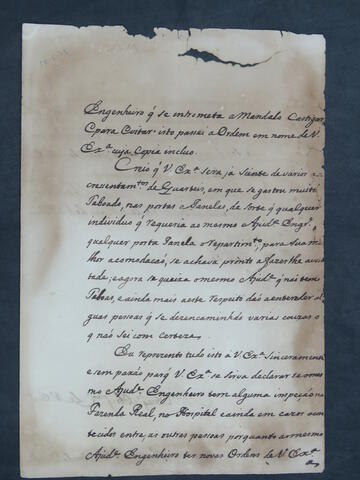 Engenheiro q̃ se entrometa a Mandalo Castigar
Cpara Evitar isto passei a Ordem em nome de V.
Ex.ª cuja Copia incluo.
Creio q̃ V. Ex.ª sera ja Siente de varios a-
crusentam.tos de Quarteis, em que se gastou muito
Taboado, nas portas e Janeles, de Sorte q̃ qualquer
individuo q̃ requeria ao mesmo Ajud.e Eng.ro
qualquer porta Janela o repartim.to, para sua mi-
lhor acomodacaõ, se achava prònto a fazerlhe avon-
tade; e agora se queixa o mesmo Ajud.e q̃ naõ tem
Taboas, e ainda mais neste respeito daõ aentender al-
guas pessoas q̃ se dezencaminhdo varias couzas o
q̃ naõ sei com certeza,
Eu reprezento tudo isto a V. Ex.ª sinceramente
e sem paxaõ para q̃ V. Ex.ª se sirva declarar se o mes-
mo Ajud.e Engenheiro tem alguma inspecaõ na
Fazenda Real, no Hospital e ainda em cazos acon-
tecidos entre, as outras pessoas porquanto an mesmo
Ajud.e Engenheiro ter novas Ordens de V. Ex.ª